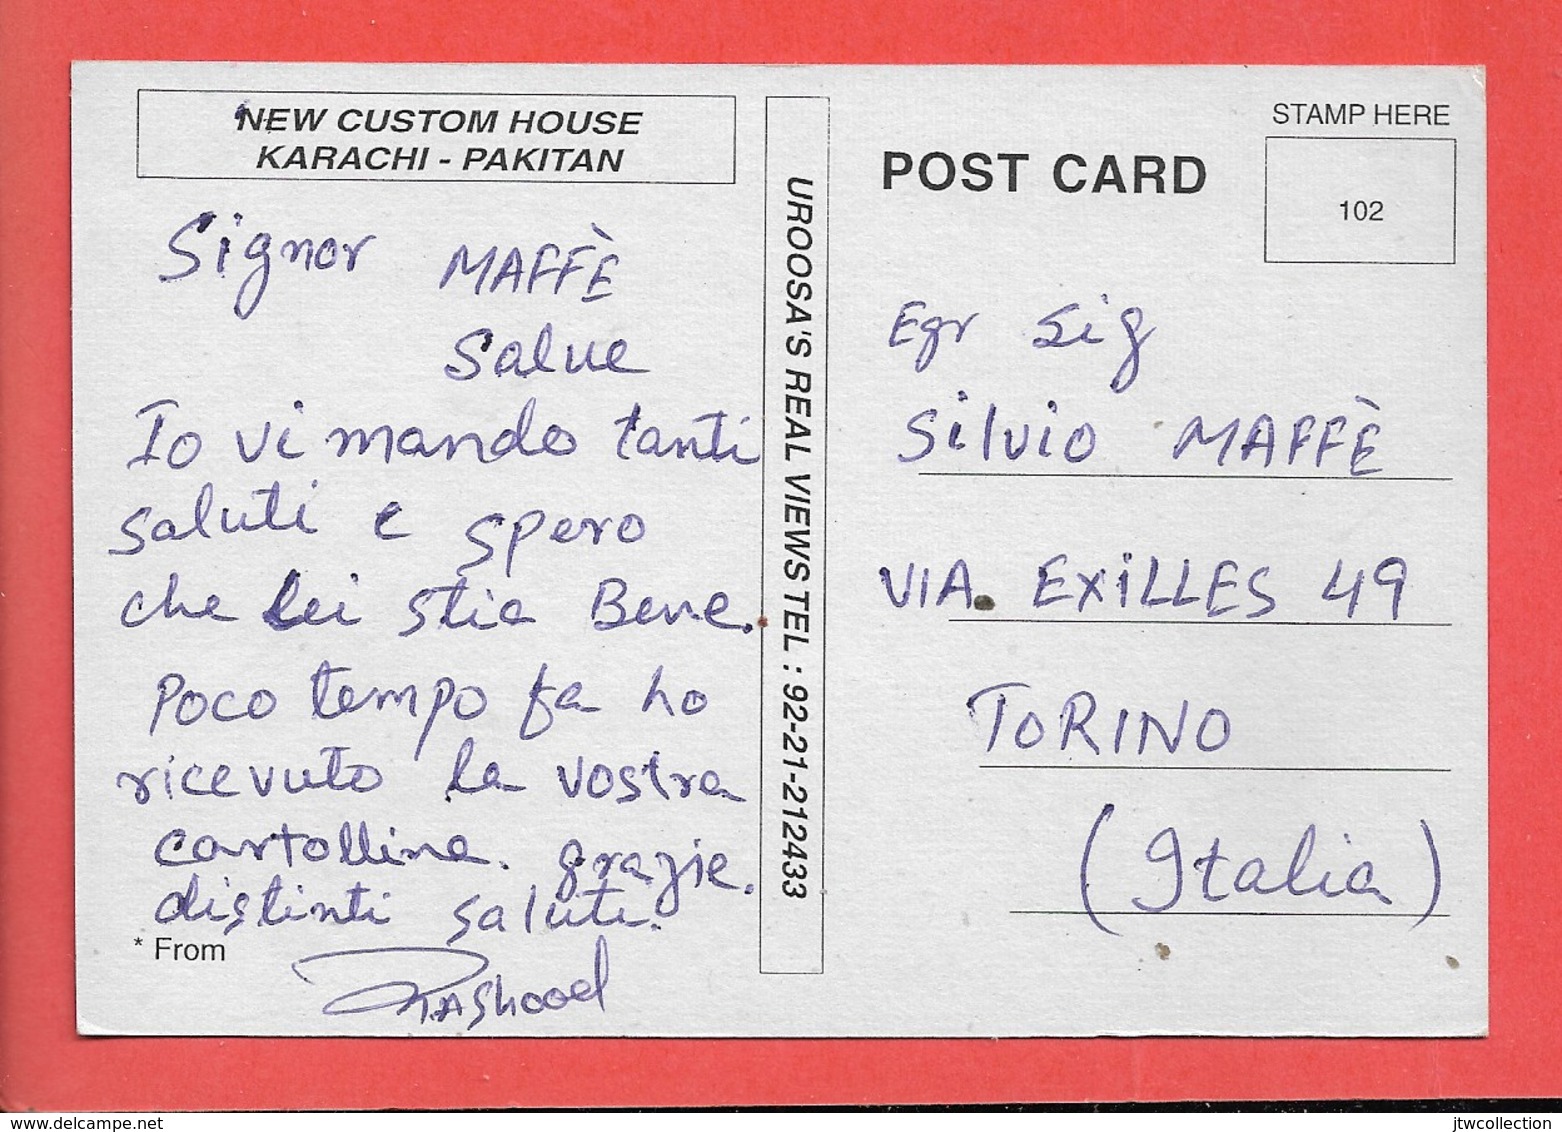 NEW CUSTOM HOUSE
KARACHI - PAKITAN
Signor MAFFÈ
Salve
Io vi mando tanti
saluti e spero
che Lei stia Bene.
Poco tempo fa ho
ricevuto la vostra
cartollina. grazie.
distinti saluti.
* From
UROOSA'S REAL VIEWS TEL : 92-21-212433
POST CARD
STAMP HERE
102
Egr Sig
Silvio MAFFÈ
VIA. EXiLLES 49
TORINO
(Italia)
delcampe.net
jtwcollection